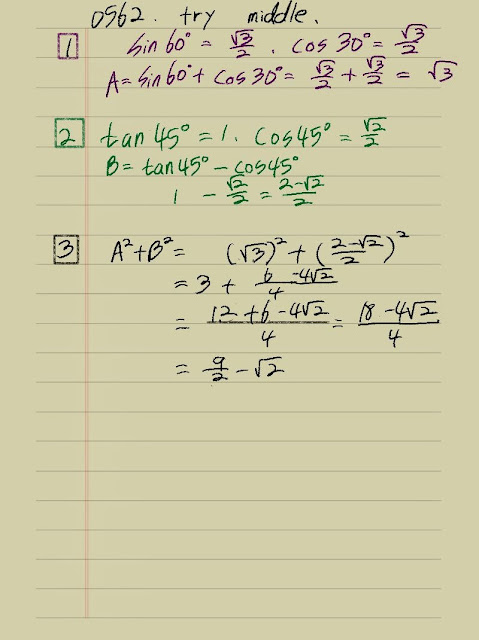 0562. try middle.
1 sin60° = √3/2 . cos30° = √3/2
A = sin60° + cos30° = √3/2 + √3/2 = √3
2 tan45° = 1. cos45° = √2/2
B = tan45° - cos45°
1 - √2/2 = (2-√2)/2
3 A²+B² = (√3)² + ((2-√2)/2)²
= 3 + (6-4√2)/4
= (12+6-4√2)/4 = (18-4√2)/4
= 9/2 - √2